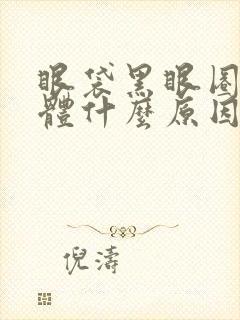 眼袋黑眼圈
體什麼原因
倪濤